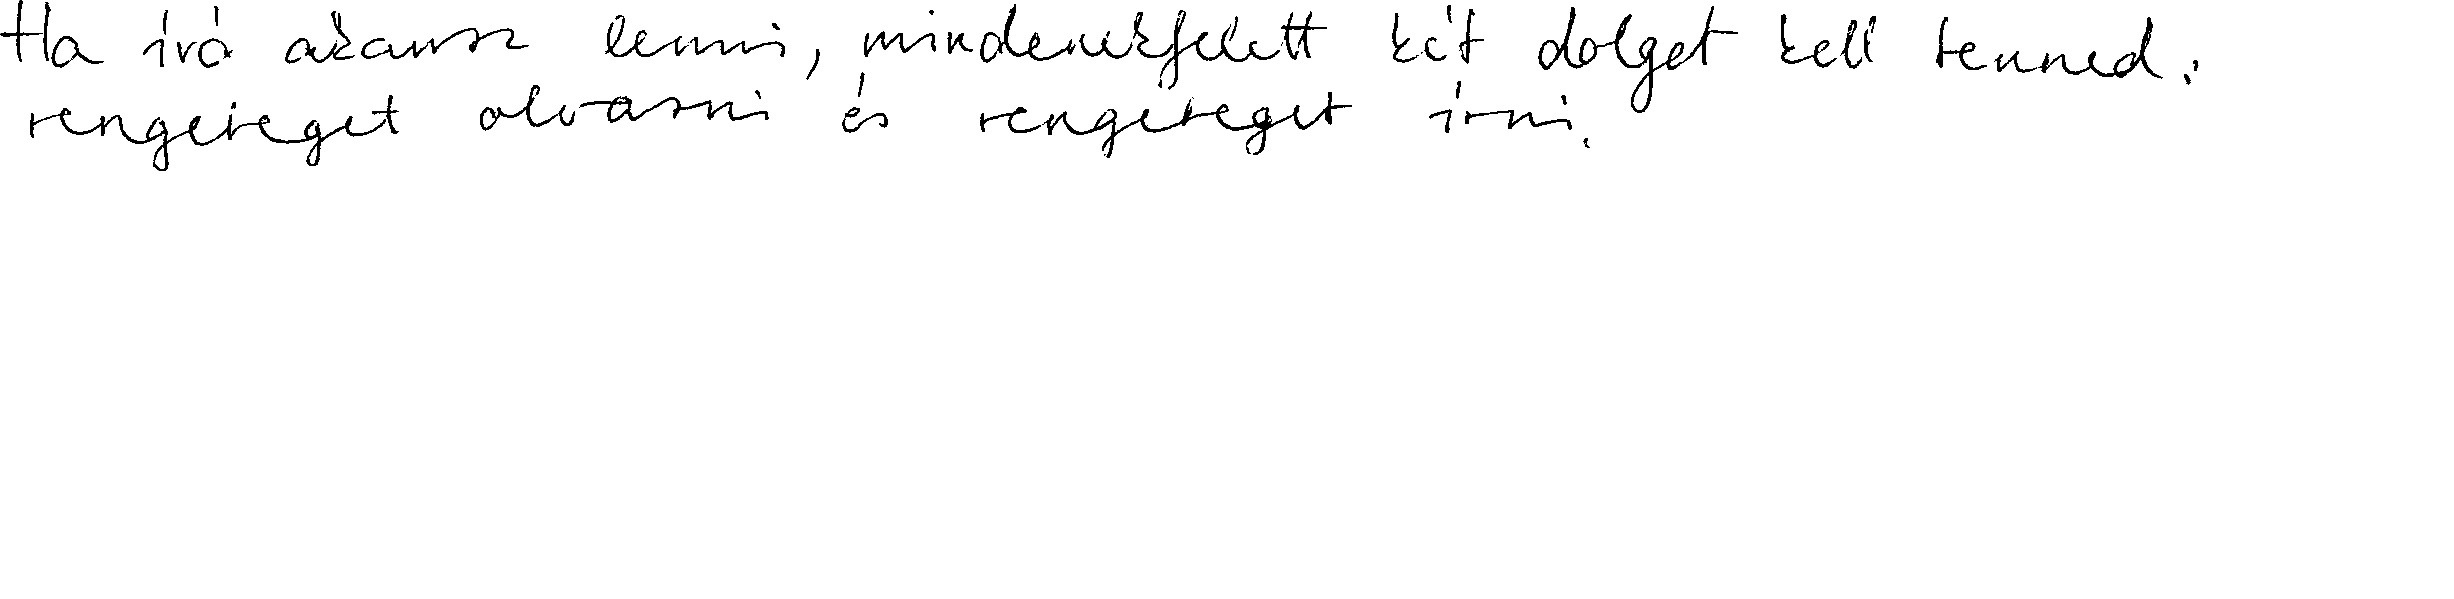 Ha író akarsz lenni, mindenekfelett két dolget kell tenned:
rengeteget olvasni és rengeteget írni.